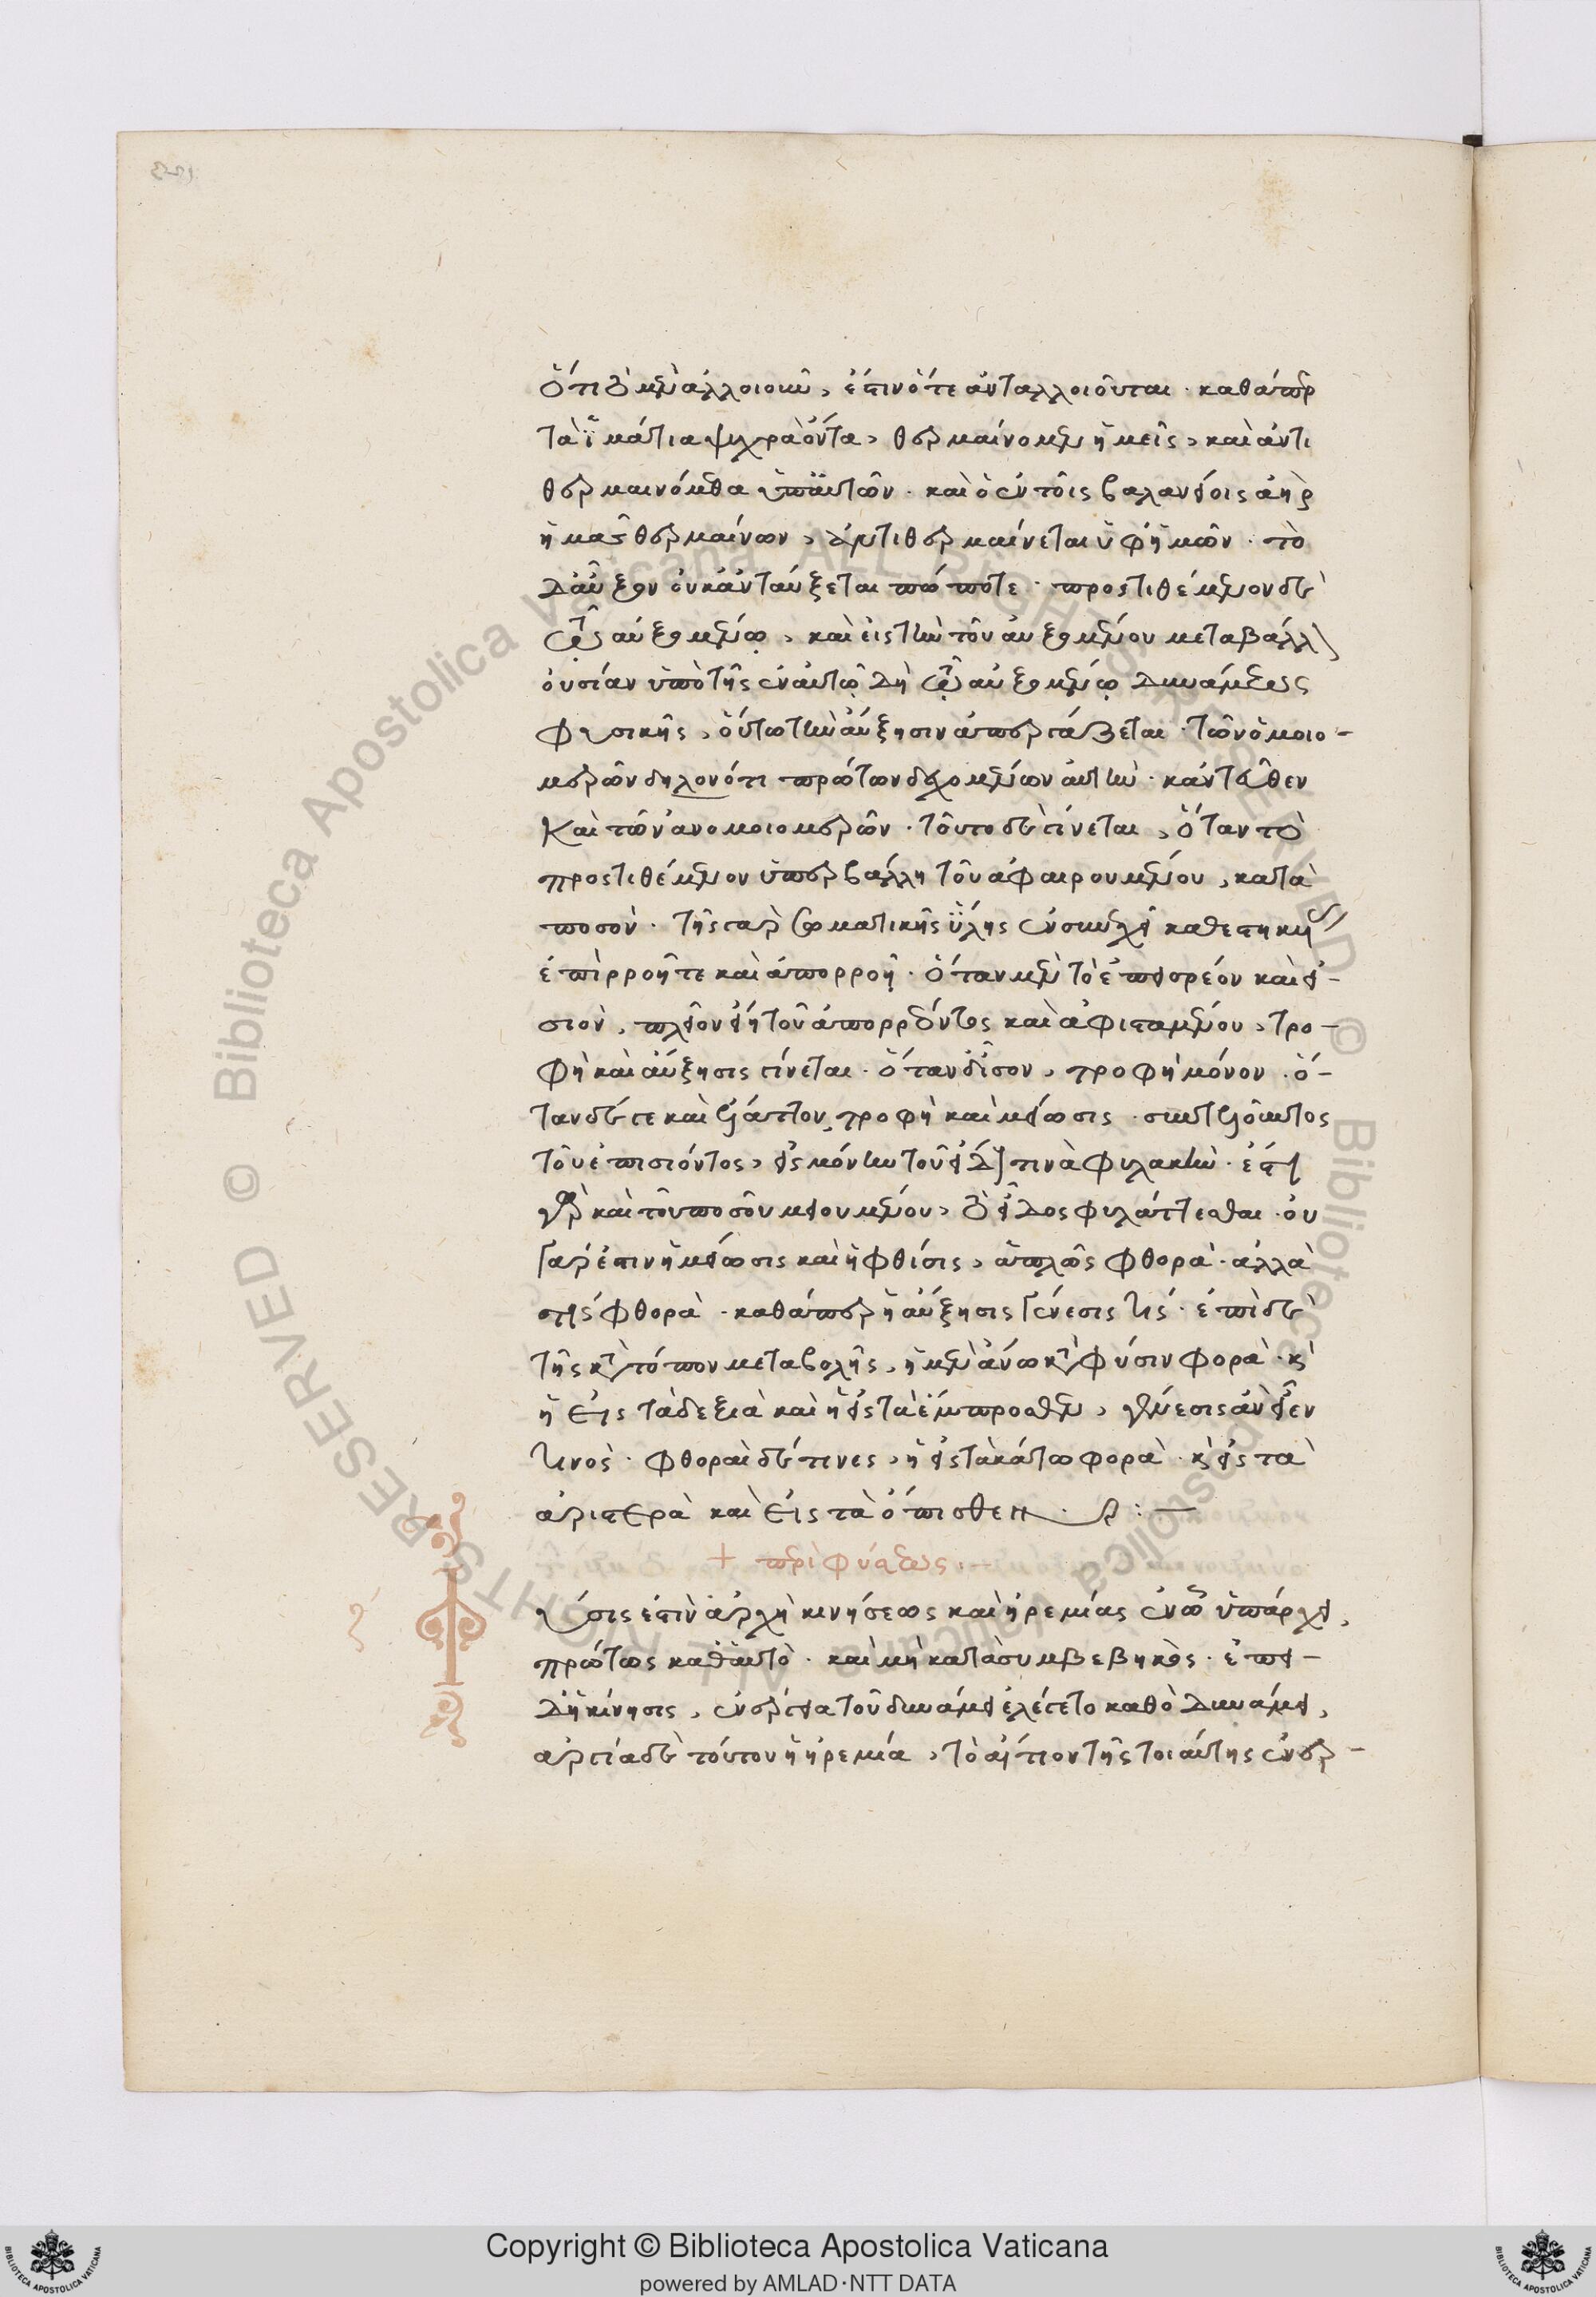 ὅτι τὸ μὲν ἀλλοιοῦν, ἔστιν ὅτε ἀνταλλοιοῦται · καθάπερ
τὰ ἱμάτια ψυχρὰ ὄντα, θερμαίνομεν ἡμεῖς, καὶ ἀντι
θερμαινόμεθα ὑπ' αὐτῶν · καὶ ὁ ἐν τοῖς βαλανείοις ἀὴρ
ἡμᾶς θερμαίνων, ἀντιθερμαίνεται ὑφ' ἡμῶν · τὸ
δ' αὖξον οὐκ ἀνταύξεται πώποτε · προστιθέμενον δὲ
τοῖς αὐξομένῳ, καὶ εἰς τὴν τοῦ αὐξομένου μεταβάλλον
οὐσίαν ὑπὸ τῆς ἐν αὐτῷ δὴ τῷ αὐξομένῳ δυνάμεως
φυσικῆς, οὕτω τὴν αὔξησιν ἀπεργάζεται · τῶν ὁμοιο-
μερῶν δηλονότι πρώτων δεχομένων αὐτὴν · κἀντεῦθεν
καὶ τῶν ἀνομοιομερῶν · τοῦτο δὲ γίνεται, ὅταν τὸ
προστιθέμενον ὑπερβάλλῃ τοῦ ἀφαιρουμένου, κατὰ
ποσόν · τῆς γὰρ σωματικῆς ὕλης ἐν συνεχεῖ καθεστηκυίας
ἐπιρροῇ τε καὶ ἀπορροῇ · ὅταν μὲν τὸ ἐπεισρέον καὶ εἰ-
σιὸν, πλεῖον εἴη τοῦ ἀπορρέοντος καὶ ἀφισταμένου, τρο-
φὴ καὶ αὔξησις γίνεται · ὅταν δ' ἴσον, τροφὴ μόνον · ὅ-
ταν δέ γε καὶ ἔλαττον, τροφὴ καὶ μείωσις · συντηροῦντος
τοῦ ἐπεισιόντος, εἰς μόνην τοῦ εἴδους τινὰ φυλακὴν · ἔστι
γὰρ καὶ τοῦ ποσοῦ μειουμένου, τὸ εἶδος φυλάττεσθαι · οὐ
γάρ ἐστιν ἡ μείωσις καὶ ἡ φθίσις, ἁπλῶς φθορὰ · ἀλλὰ
τὶς φθορὰ · καθάπερ ἡ αὔξησις γένεσις τίς · ἐπὶ δὲ
τῆς κατὰ τόπον μεταβολῆς, ἡ μὲν ἄνω κατὰ φύσιν φορὰ · καὶ
ἡ εἰς τὰ δεξιὰ καὶ ἡ εἰς τὰ ἔμπροσθεν, γένεσις ἂν εἶεν
τινὸς · φθοραὶ δέ τινες, ἡ εἰς τὰ κάτω φορὰ · καὶ εἰς τὰ
ἀριστερὰ καὶ εἰς τὰ ὄπισθεν · :—
+ περὶ φύσεως · —
ζ' Φύσις ἐστὶν ἀρχὴ κινήσεως καὶ ἠρεμίας ἐν ᾧ ὑπάρχει,
πρώτως καθ' αὑτὸ · καὶ μὴ κατὰ συμβεβηκός · ἐπει-
δὴ κίνησις, ἐνέργεια τοῦ δυνάμει ἐλέγετο καθὸ δυνάμει,
ἀργία δὲ τούτου ἡ ἠρεμία, τὸ αἴτιον τῆς τοιαύτης ἐνερ-
Copyright © Biblioteca Apostolica Vaticana
powered by AMLAD·NTT DATA